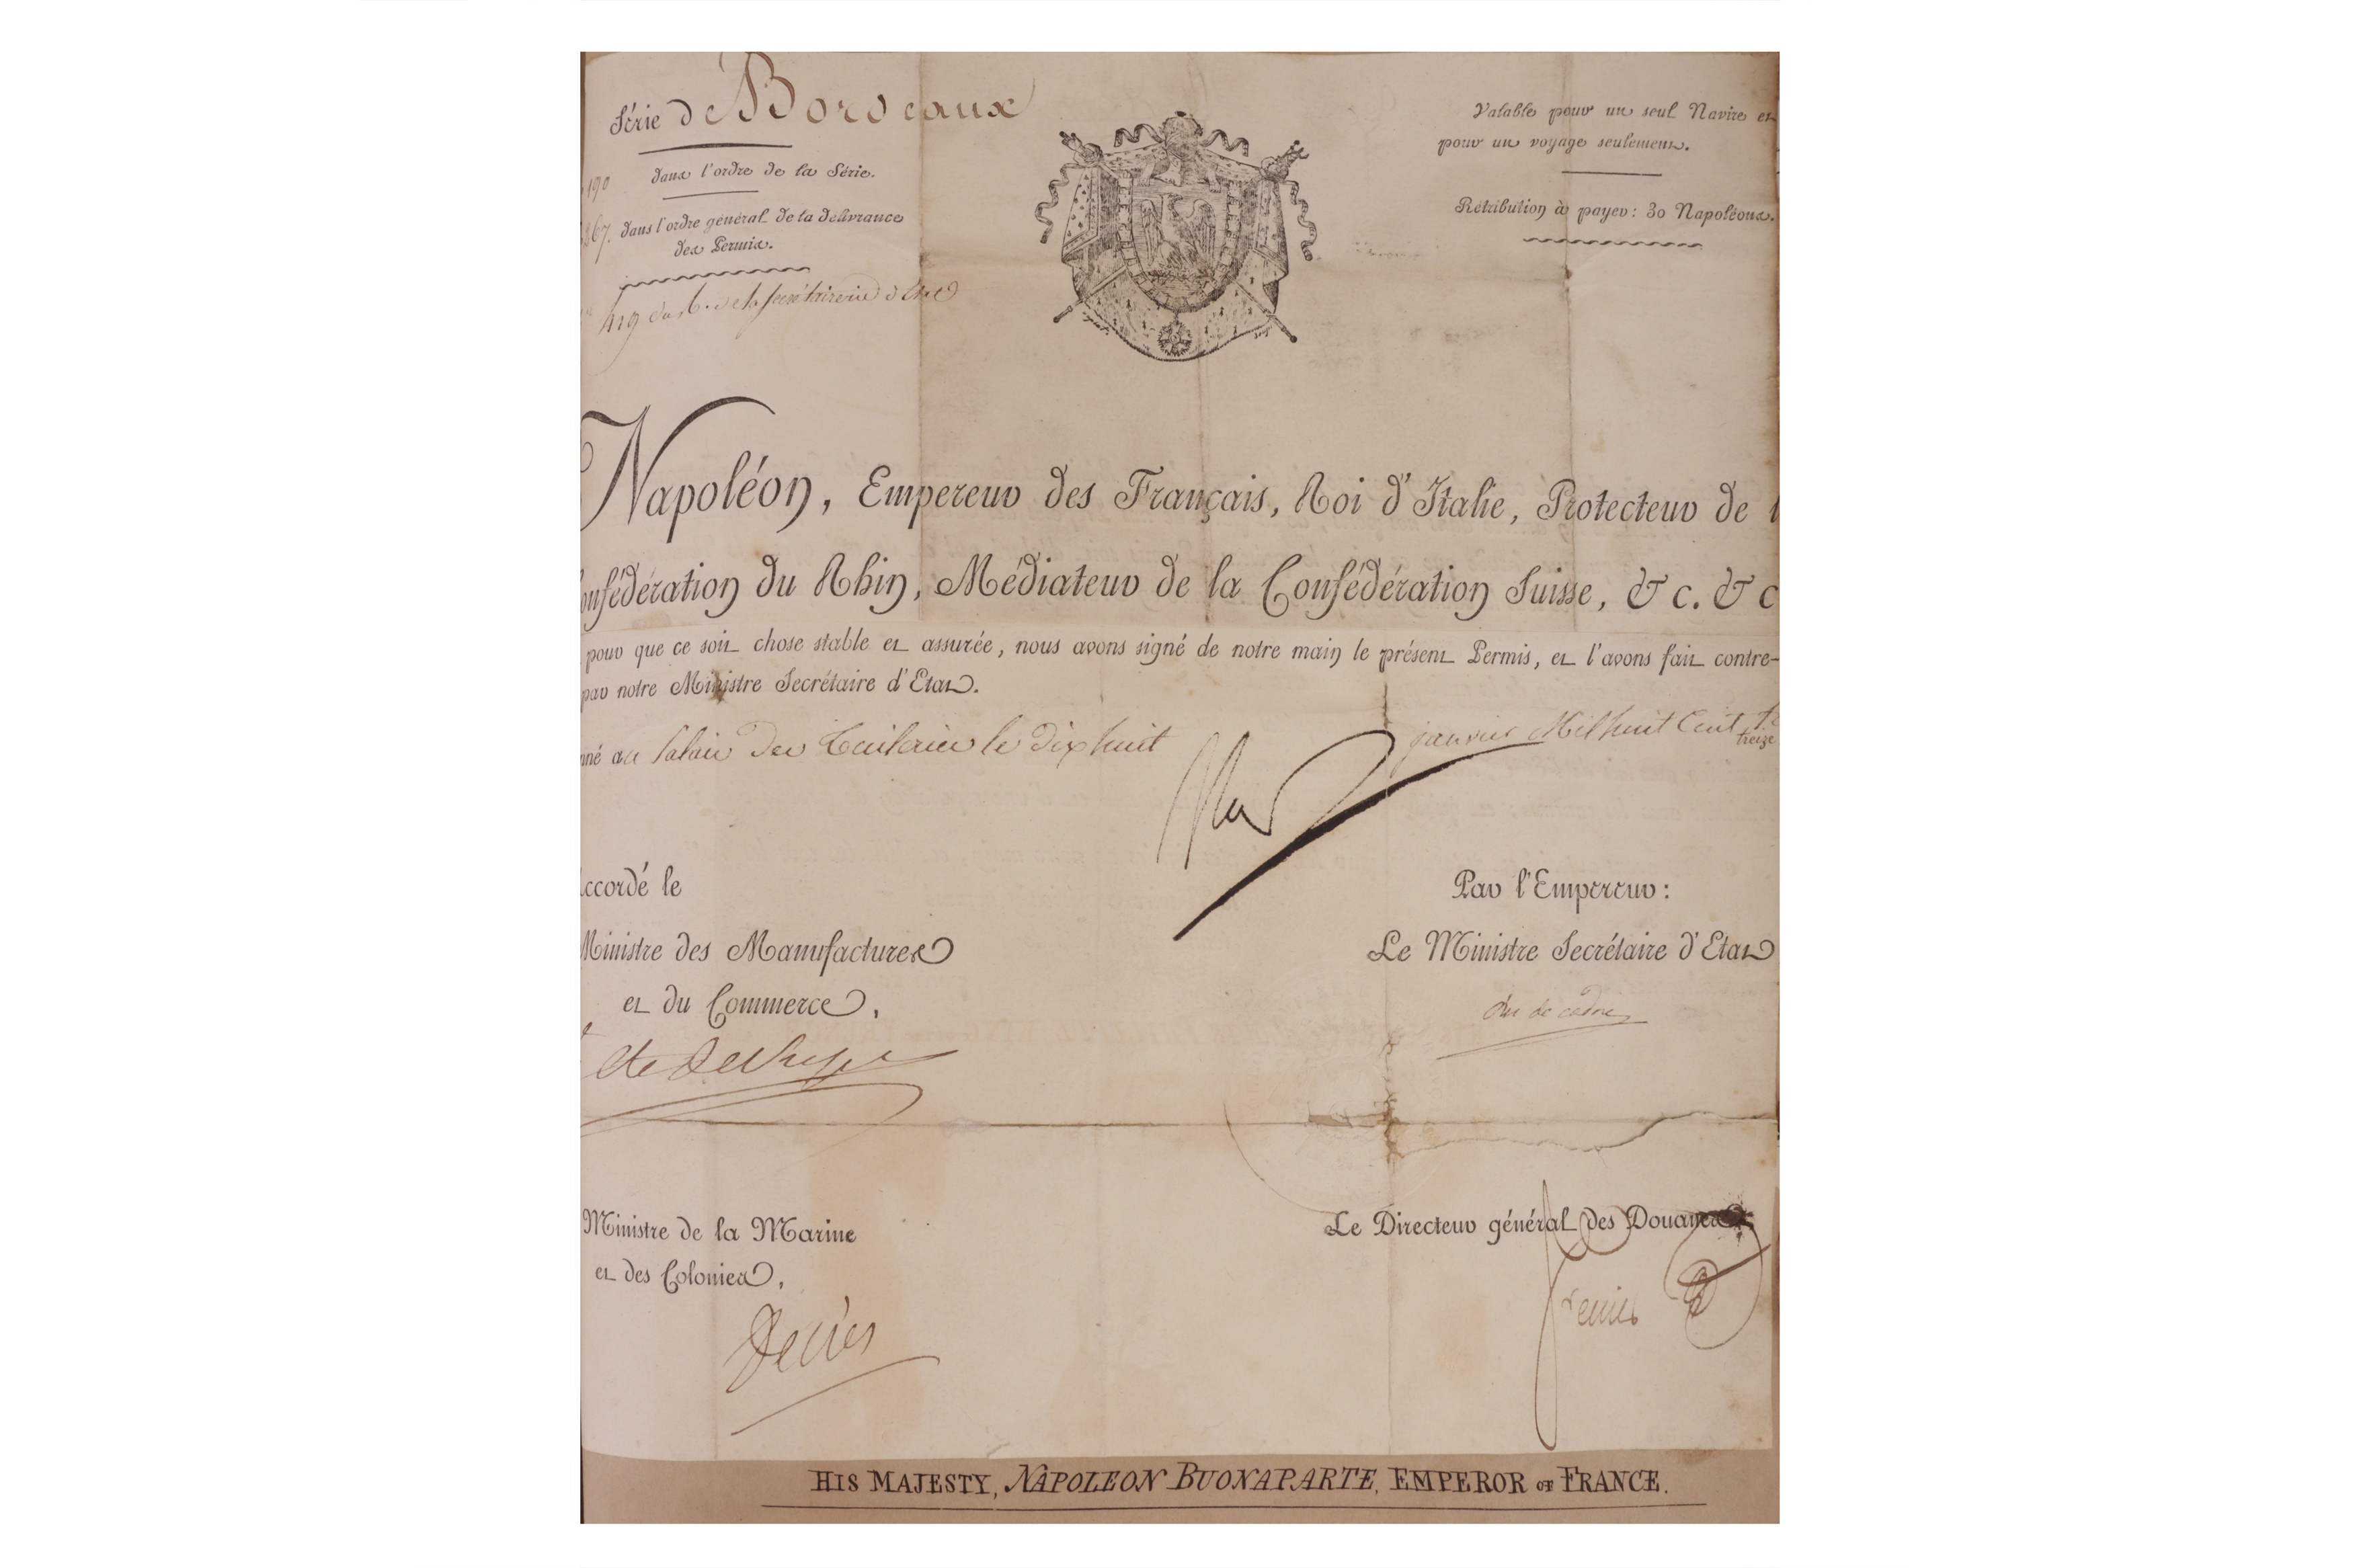 Série de Bordeaux
190 dans l'ordre de la Série.
367. dans l'ordre général de la délivrance
des Permis.
419 de la Secrétairerie d'Etat
Valable pour un seul Navire et
pour un voyage seulement.
Rétribution à payer : 30 Napoléons.
Napoléon, Empereur des Français, Roi d'Italie, Protecteur de
onfédération du Rhin, Médiateur de la Confédération Suisse, & c. & c
pour que ce soit chose stable et assurée, nous avons signé de notre main le présent Permis, et l'avons fait contre-
par notre Ministre Secrétaire d'Etat.
nné au Palais des Tuileries le dix huit janvier Mil huit Cent treize
Nap
ccordé le
Ministre des Manufactures
et du Commerce,
Par l'Empereur :
Le Ministre Secrétaire d'Etat
duc de cadore
Ministre de la Marine
et des Colonies,
Decrès
Le Directeur général des Douanes
ferrier
HIS MAJESTY, NAPOLEON BUONAPARTE, EMPEROR OF FRANCE.